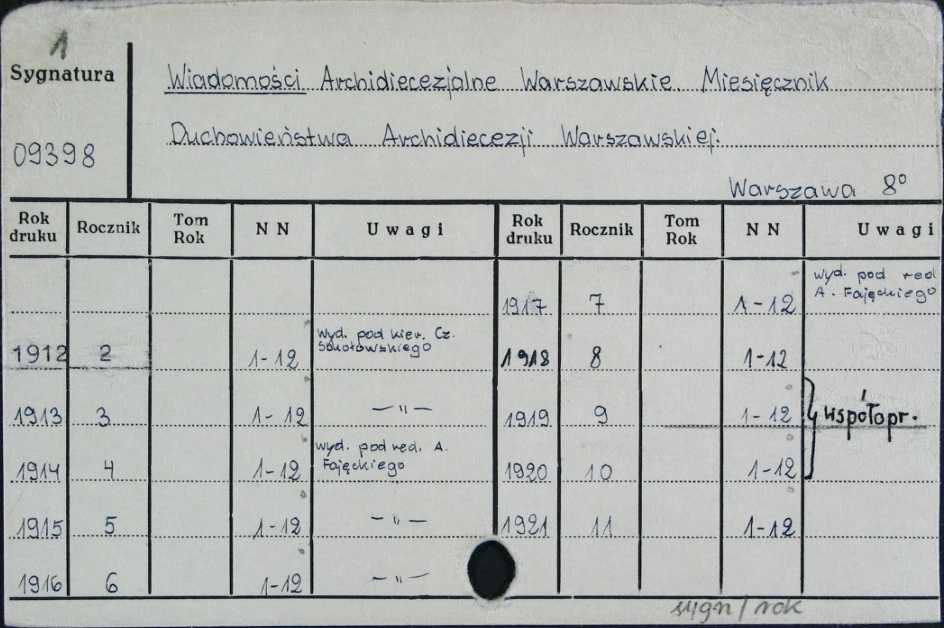 1
Sygnatura
09398
Wiadomości Archidiecezjalne Warszawskie. Miesięcznik
Duchowieństwa Archidiecezji Warszawskiej.
Warszawa 8°
Rok druku Rocznik Tom Rok NN Uwagi Rok druku Rocznik Tom Rok NN Uwagi
1917 7 1-12 wyd. pod red A. Fajęckiego
1912 2 1-12 wyd. pod kier. Cz. Sokołowskiego 1918 8 1-12
1913 3 1-12 —"— 1919 9 1-12 współopr.
1914 4 1-12 wyd. pod red. A. Fajęckiego 1920 10 1-12
1915 5 1-12 —"— 1921 11 1-12
1916 6 1-12 —"—
sygn/rok